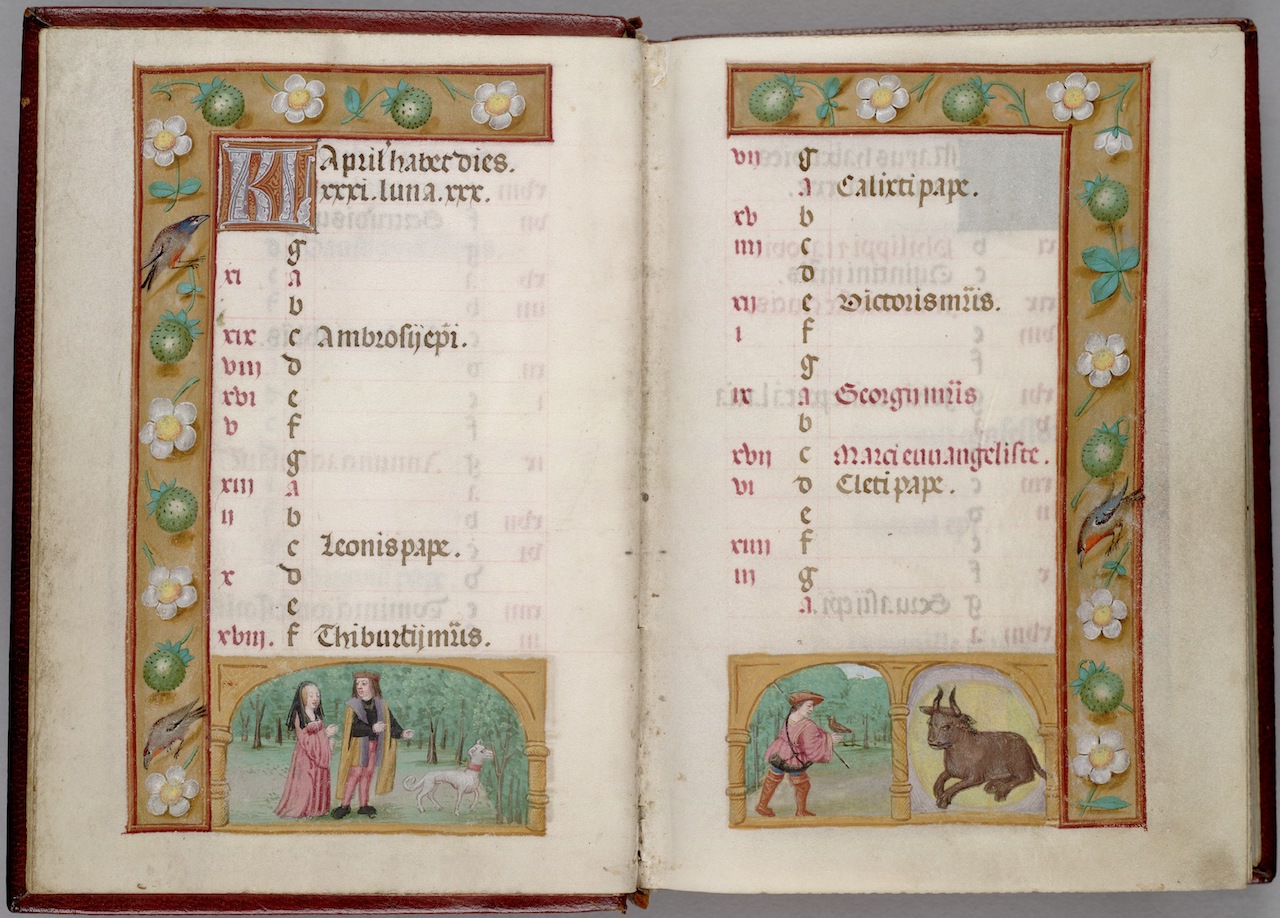 KL April' habet dies.
xxxi. luna. xxx.
g
xi a
b
xix c Ambrosij ep̄i.
viij d
xvi e
v f
g
xiij a
ij b
c Leonis pape.
x d
e
xviij. f Thiburtij mr̄is.
vij g
a Calixti pape.
xv b
iiij c
d
xij e Victoris mr̄is.
i f
g
ix a Georgij mr̄is
b
xvij c Marci euuangeliste.
vi d Cleti pape.
e
xiiij f
iij g
a.